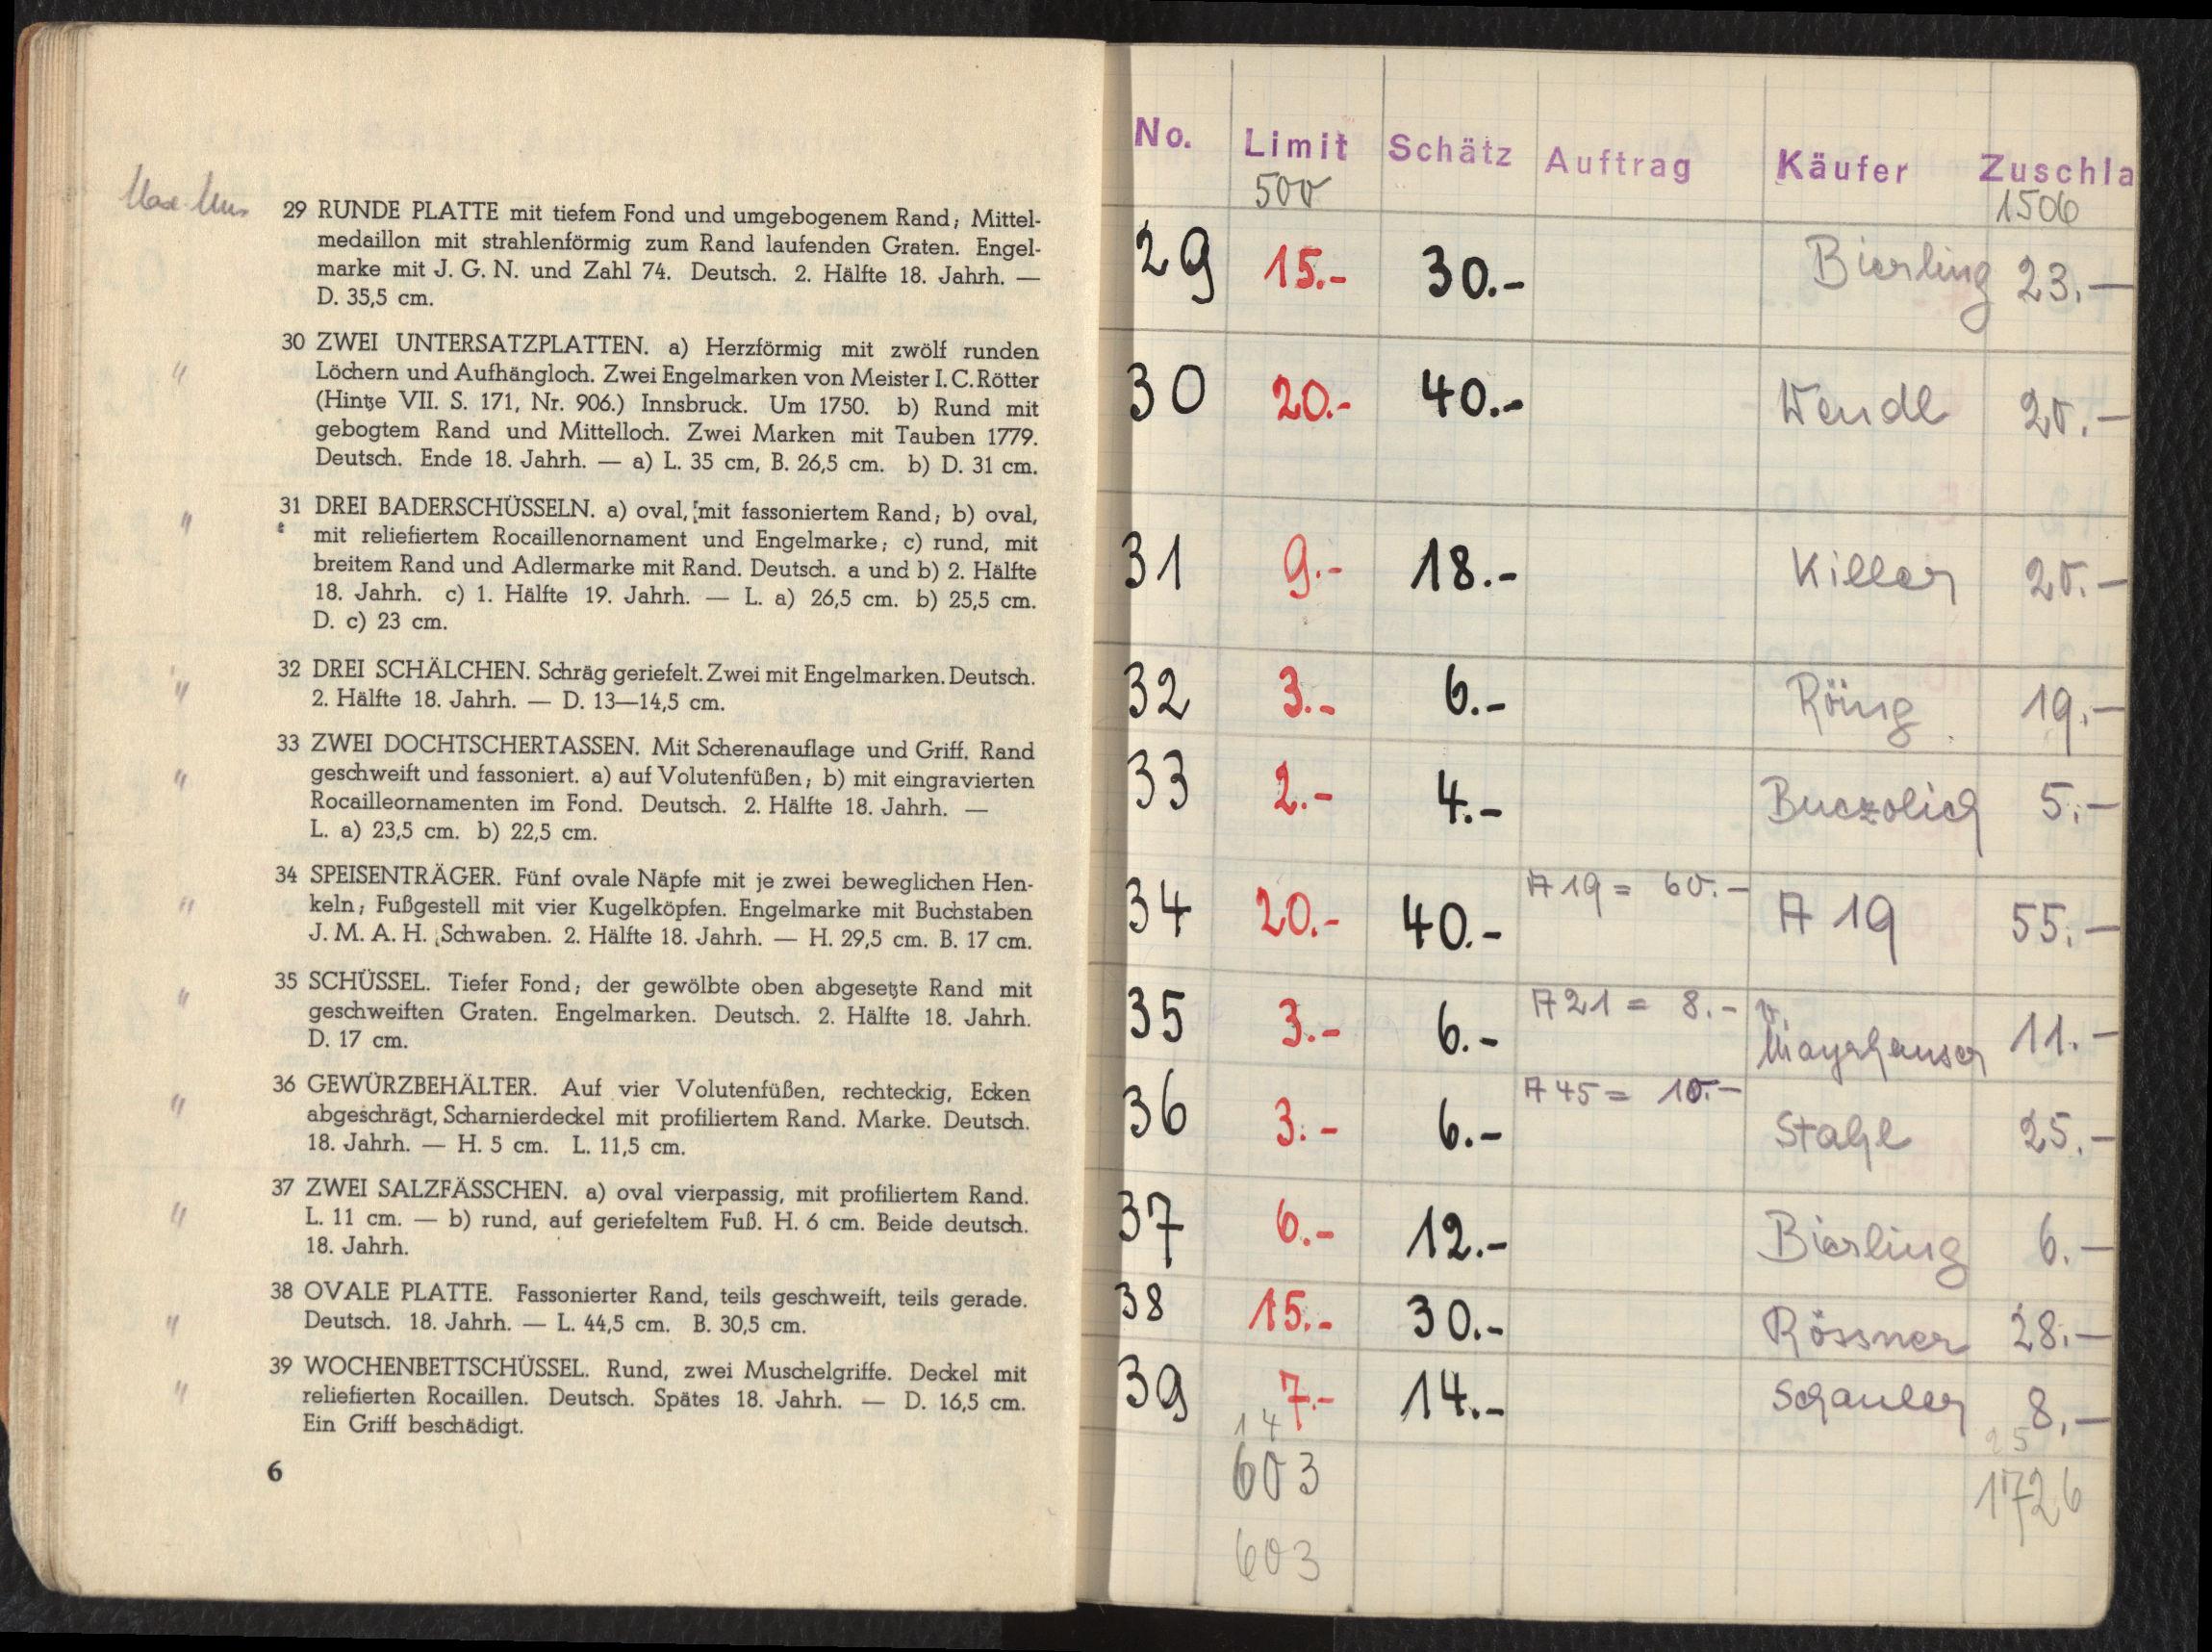 29 RUNDE PLATTE mit tiefem Fond und umgebogenem Rand; Mittel-
medaillon mit strahlenförmig zum Rand laufenden Graten. Engel-
marke mit J. G. N. und Zahl 74. Deutsch. 2. Hälfte 18. Jahrh. —
D. 35,5 cm.
" 30 ZWEI UNTERSATZPLATTEN. a) Herzförmig mit zwölf runden
Löchern und Aufhängloch. Zwei Engelmarken von Meister I. C. Rötter
(Hintze VII. S. 171, Nr. 906.) Innsbruck. Um 1750. b) Rund mit
gebogtem Rand und Mittelloch. Zwei Marken mit Tauben 1779.
Deutsch. Ende 18. Jahrh. — a) L. 35 cm, B. 26,5 cm. b) D. 31 cm.
" 31 DREI BADERSCHÜSSELN. a) oval, mit fassoniertem Rand; b) oval,
mit reliefiertem Rocaillenornament und Engelmarke; c) rund, mit
breitem Rand und Adlermarke mit Rand. Deutsch. a und b) 2. Hälfte
18. Jahrh. c) 1. Hälfte 19. Jahrh. — L. a) 26,5 cm. b) 25,5 cm.
D. c) 23 cm.
" 32 DREI SCHÄLCHEN. Schräg geriefelt. Zwei mit Engelmarken. Deutsch.
2. Hälfte 18. Jahrh. — D. 13—14,5 cm.
" 33 ZWEI DOCHTSCHERTASSEN. Mit Scherenauflage und Griff. Rand
geschweift und fassoniert. a) auf Volutenfüßen; b) mit eingravierten
Rocailleornamenten im Fond. Deutsch. 2. Hälfte 18. Jahrh. —
L. a) 23,5 cm. b) 22,5 cm.
" 34 SPEISENTRÄGER. Fünf ovale Näpfe mit je zwei beweglichen Hen-
keln; Fußgestell mit vier Kugelköpfen. Engelmarke mit Buchstaben
J. M. A. H. Schwaben. 2. Hälfte 18. Jahrh. — H. 29,5 cm. B. 17 cm.
" 35 SCHÜSSEL. Tiefer Fond; der gewölbte oben abgesetzte Rand mit
geschweiften Graten. Engelmarken. Deutsch. 2. Hälfte 18. Jahrh.
D. 17 cm.
" 36 GEWÜRZBEHÄLTER. Auf vier Volutenfüßen, rechteckig, Ecken
abgeschrägt, Scharnierdeckel mit profiliertem Rand. Marke. Deutsch.
18. Jahrh. — H. 5 cm. L. 11,5 cm.
" 37 ZWEI SALZFÄSSCHEN. a) oval vierpassig, mit profiliertem Rand.
L. 11 cm. — b) rund, auf geriefeltem Fuß. H. 6 cm. Beide deutsch.
18. Jahrh.
" 38 OVALE PLATTE. Fassonierter Rand, teils geschweift, teils gerade.
Deutsch. 18. Jahrh. — L. 44,5 cm. B. 30,5 cm.
" 39 WOCHENBETTSCHÜSSEL. Rund, zwei Muschelgriffe. Deckel mit
reliefierten Rocaillen. Deutsch. Spätes 18. Jahrh. — D. 16,5 cm.
Ein Griff beschädigt.
6
No. Limit Schätz Auftrag Käufer Zuschla
500 1506
29 15.- 30.- Bierling 23.—
30 20.- 40.- Wendl 20.—
31 9.- 18.- Killer 20.—
32 3.- 6.- 19.—
33 2.- 4.- Buczolich 5.—
34 20.- 40.- A 19 = 60.— A 19 55.—
35 3.- 6.- A 21 = 8.— v. Mayrhauser 11.—
36 3.- 6.- A 45 = 10.— Stahl 25.—
37 6.- 12.- Bierling 6.—
38 15.- 30.- Rössner 28.—
39 7.- 14.- Schauler 8.—
14 25
603 1726
603